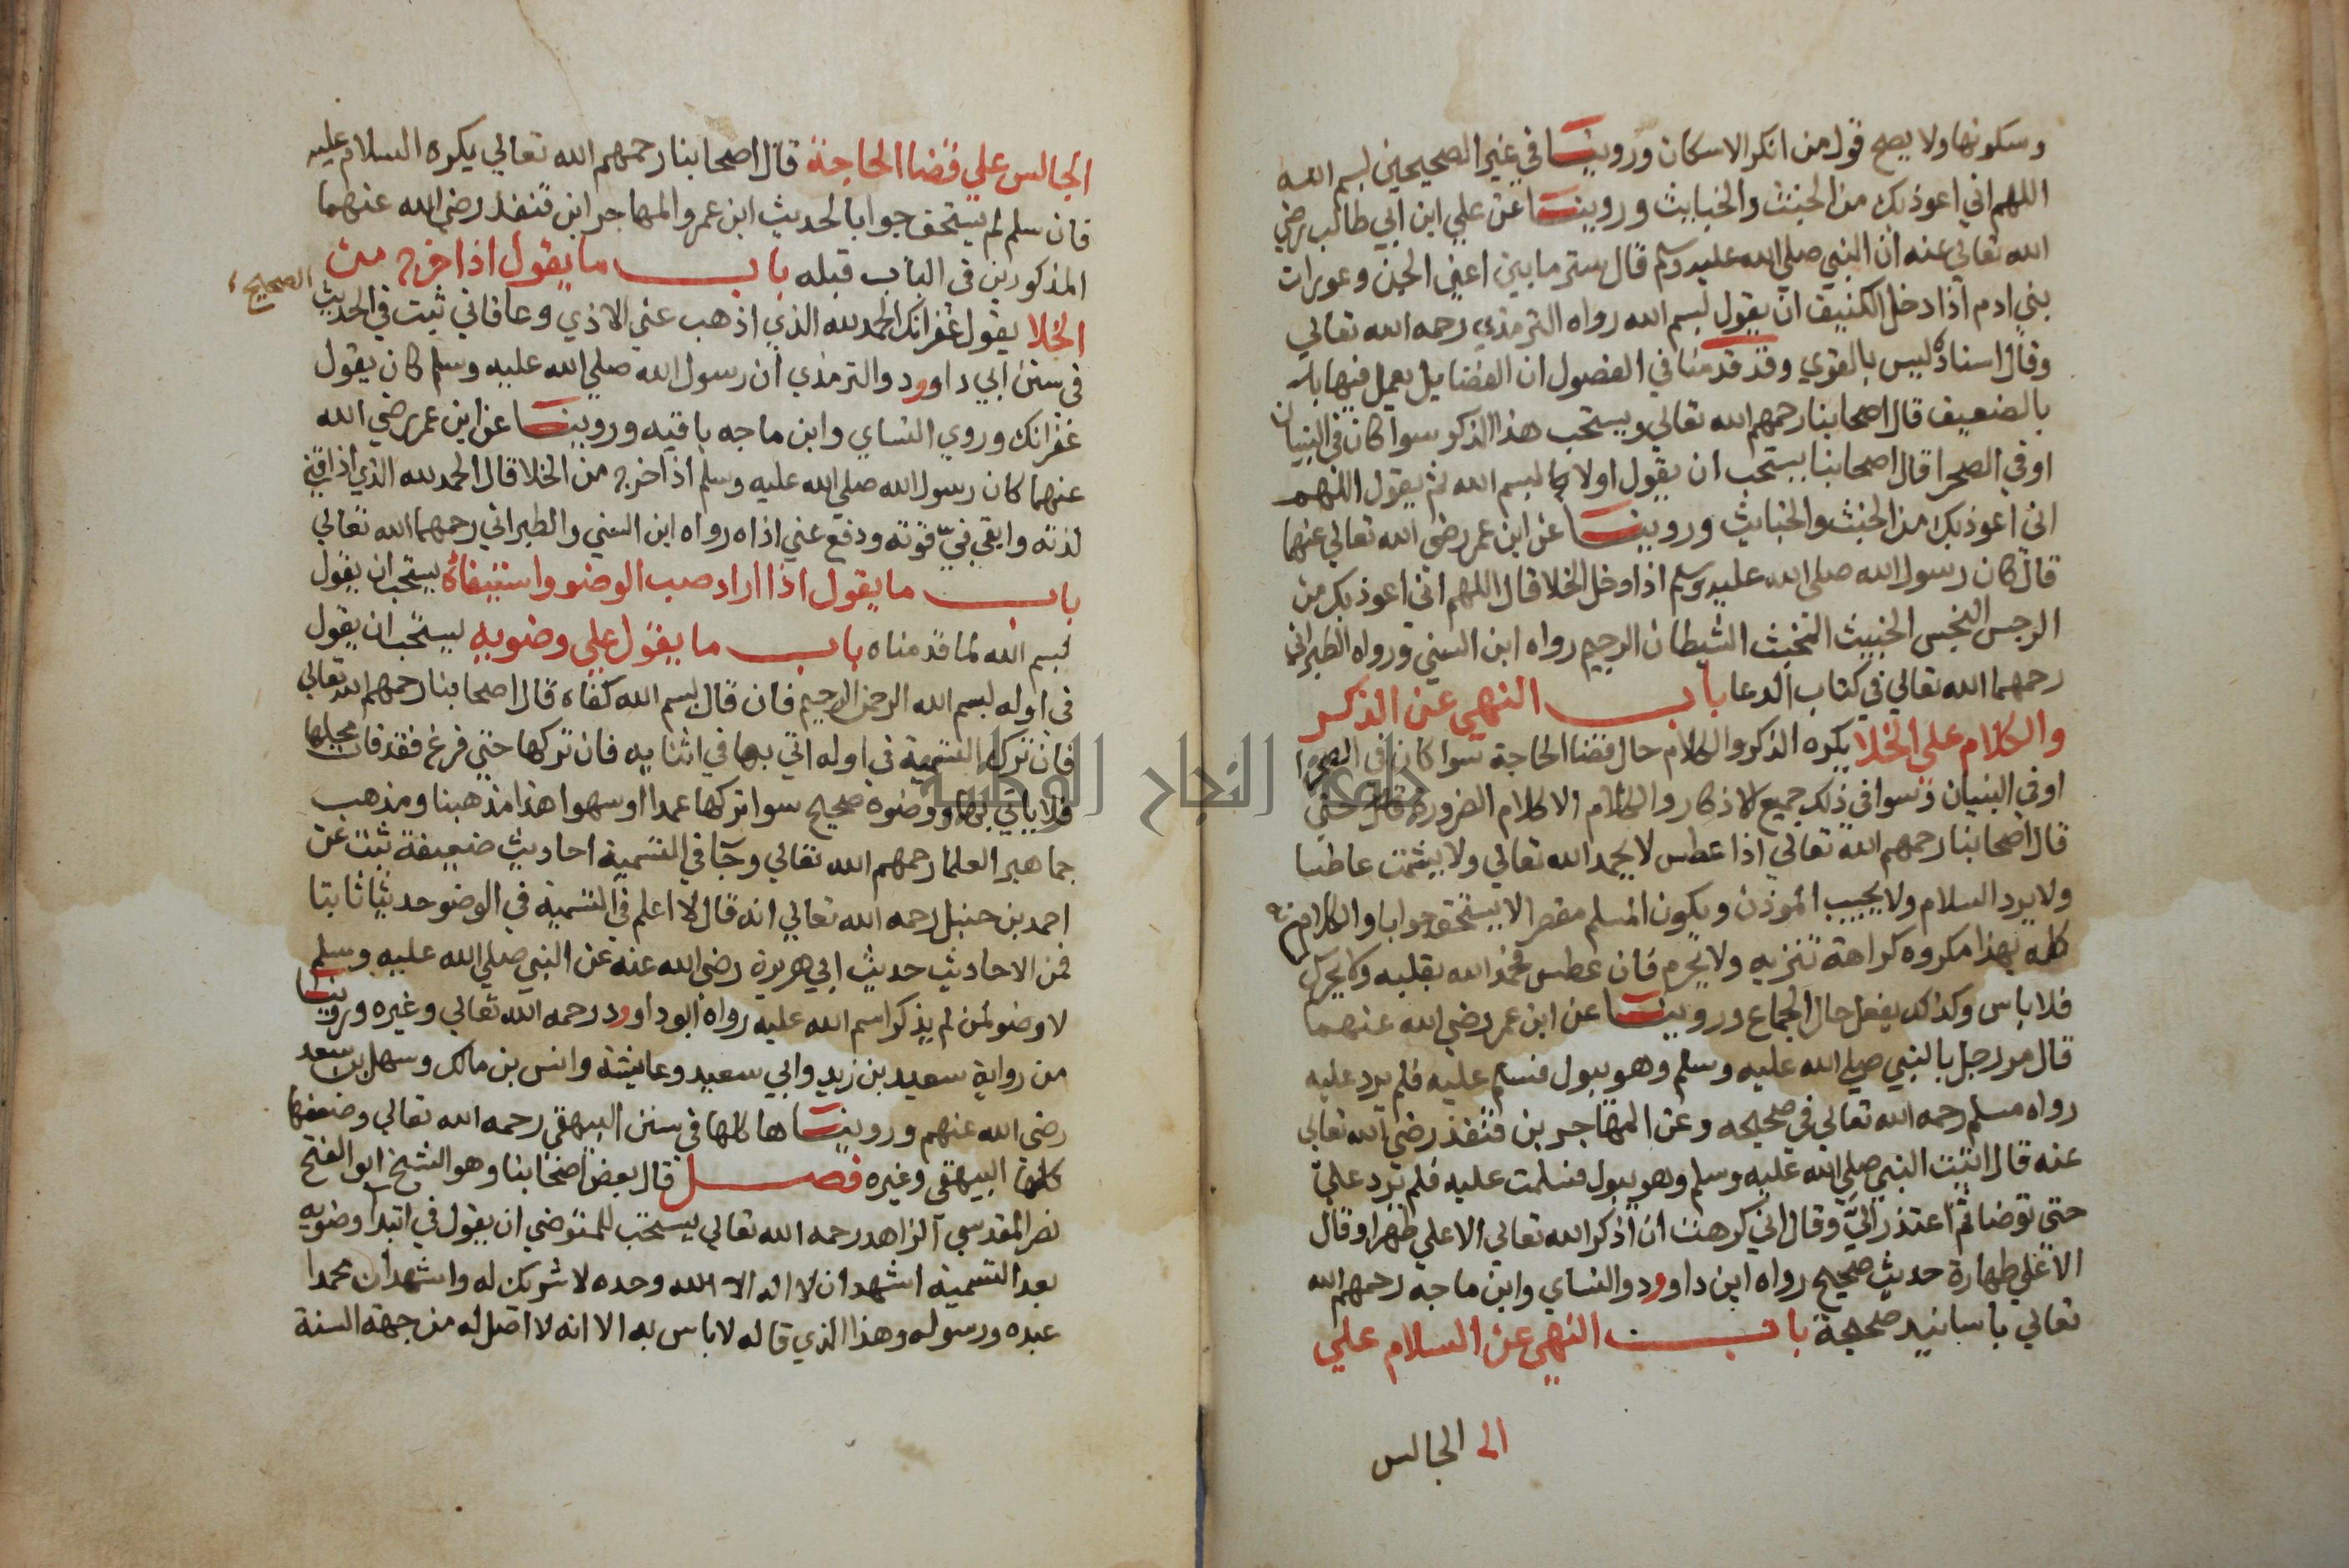 وسكونها ولا يصح قول من انكر الاسكان وروينا في غير الصحيحين بسم الله
اللهم اني اعوذ بك من الخبث والخبايث وروينا عن علي ابن ابي طالب رضي
الله تعالي عنه ان النبي صلي الله عليه وسلم قال ستر ما بين اعين الجن وعورات
بني ادم اذا دخل الكنيف ان يقول بسم الله رواه الترمذي رحمه الله تعالي
وقال اسناده ليس بالقوي وقد قدمنا في الفصول ان الفضايل يعمل فيها
بالضعيف قال اصحابنا رحمهم الله تعالي ويستحب هذا الذكر سوا كان في البنيان
او في الصحرا قال اصحابنا يستحب ان يقول اولا بسم الله ثم يقول اللهم
اني اعوذ بك من الخبث والخبايث وروينا عن ابن عمر رضي الله تعالي عنهما
قال كان رسول الله صلي الله عليه وسلم اذا دخل الخلا قال اللهم اني اعوذ بك من
الرجس النجس الخبيث المخبث الشيطان الرجيم رواه ابن السني ورواه الطبراني
رحمهما الله تعالي في كتاب الدعا باب النهي عن الذكر
والكلام علي الخلا يكره الذكر والكلام حال قضا الحاجة سوا كان في الصحرا
او في البنيان وسوا في ذلك جميع الاذكار والكلام الا كلام الضرورة حتي
قال اصحابنا رحمهم الله تعالي اذا عطس لا يحمد الله تعالي ولا يشمت عاطسا
ولا يرد السلام ولا يجيب الموذن ويكون المسلم مقصرا لا يستحق جوابا والكلام
كله بهذا مكروه كراهة تنزيه ولا يحرم فان عطس فحمد الله بقلبه ولم يحرك
فلا باس وكذلك يفعل حال الجماع وروينا عن ابن عمر رضي الله عنهما
قال مر رجل بالنبي صلي الله عليه وسلم وهو يبول فسلم عليه فلم يرد عليه
رواه مسلم رحمه الله تعالي في صحيحه وعن المهاجر بن قنفذ رضي الله تعالي
عنه قال اتيت النبي صلي الله عليه وسلم وهو يبول فسلمت عليه فلم يرد علي
حتي توضا ثم اعتذر الي وقال اني كرهت ان اذكر الله تعالي الا علي طهر او قال
الا علي طهارة حديث صحيح رواه ابن داوود والنساي وابن ماجه رحمهم الله
تعالي باسانيد صحيحة باب النهي عن السلام علي
الجالس
الجالس علي قضا الحاجة قال اصحابنا رحمهم الله تعالي يكره السلام عليه
فان سلم لم يستحق جوابا لحديث ابن عمر والمهاجر ابن قنفذ رضي الله عنهما
المذكورين في الباب قبله باب ما يقول اذا خرج من
الخلا يقول غفرانك الحمد لله الذي اذهب عني الاذي وعافاني ثبت في الحديث الصحيح
في سنن ابي داوود والترمذي ان رسول الله صلي الله عليه وسلم كان يقول
غفرانك وروي النساي وابن ماجه باقيه وروينا عن ابن عمر رضي الله
عنهما كان رسول الله صلي الله عليه وسلم اذا خرج من الخلا قال الحمد لله الذي اذاقني
لذته وابقي فيّ قوته ودفع عني اذاه رواه ابن السني والطبراني رحمهما الله تعالي
باب ما يقول اذا اراد صب الوضو واستيفاه يستحب ان يقول
بسم الله لما قدمناه باب ما يقول علي وضويه يستحب ان يقول
في اوله بسم الله الرحمن الرحيم فان قال بسم الله كفاه قال اصحابنا رحمهم الله تعالي
فان ترك التسمية في اوله اتي بها في اثنايه فان تركها حتي فرغ فقد فات محلها
فلا ياتي بها ووضوه صحيح سوا تركها عمدا او سهوا هذا مذهبنا ومذهب
جماهير العلما رحمهم الله تعالي وجا في التسمية احاديث ضعيفة ثبت عن
احمد بن حنبل رحمه الله تعالي انه قال لا اعلم في التسمية في الوضو حديثا ثابتا
فمن الاحاديث حديث ابي هريرة رضي الله عنه عن النبي صلي الله عليه وسلم
لا وضو لمن لم يذكر اسم الله عليه رواه ابو داوود رحمه الله تعالي وغيره وروينا
من رواية سعيد بن زيد وابي سعيد وعايشة وانس بن مالك وسهل بن سعد
رضي الله عنهم وروينا ها كلها في سنن البيهقي رحمه الله تعالي وضعفها
كلها البيهقي وغيره فصل قال بعض اصحابنا وهو الشيخ ابو الفتح
نصر المقدسي الزاهد رحمه الله تعالي يستحب للمتوضي ان يقول في ابتدا وضويه
بعد التسمية اشهد ان لا اله الا الله وحده لا شريك له واشهد ان محمدا
عبده ورسوله وهذا الذي قاله لا باس به الا انه لا اصل له من جهة السنة
جامعة النجاح الوطنية